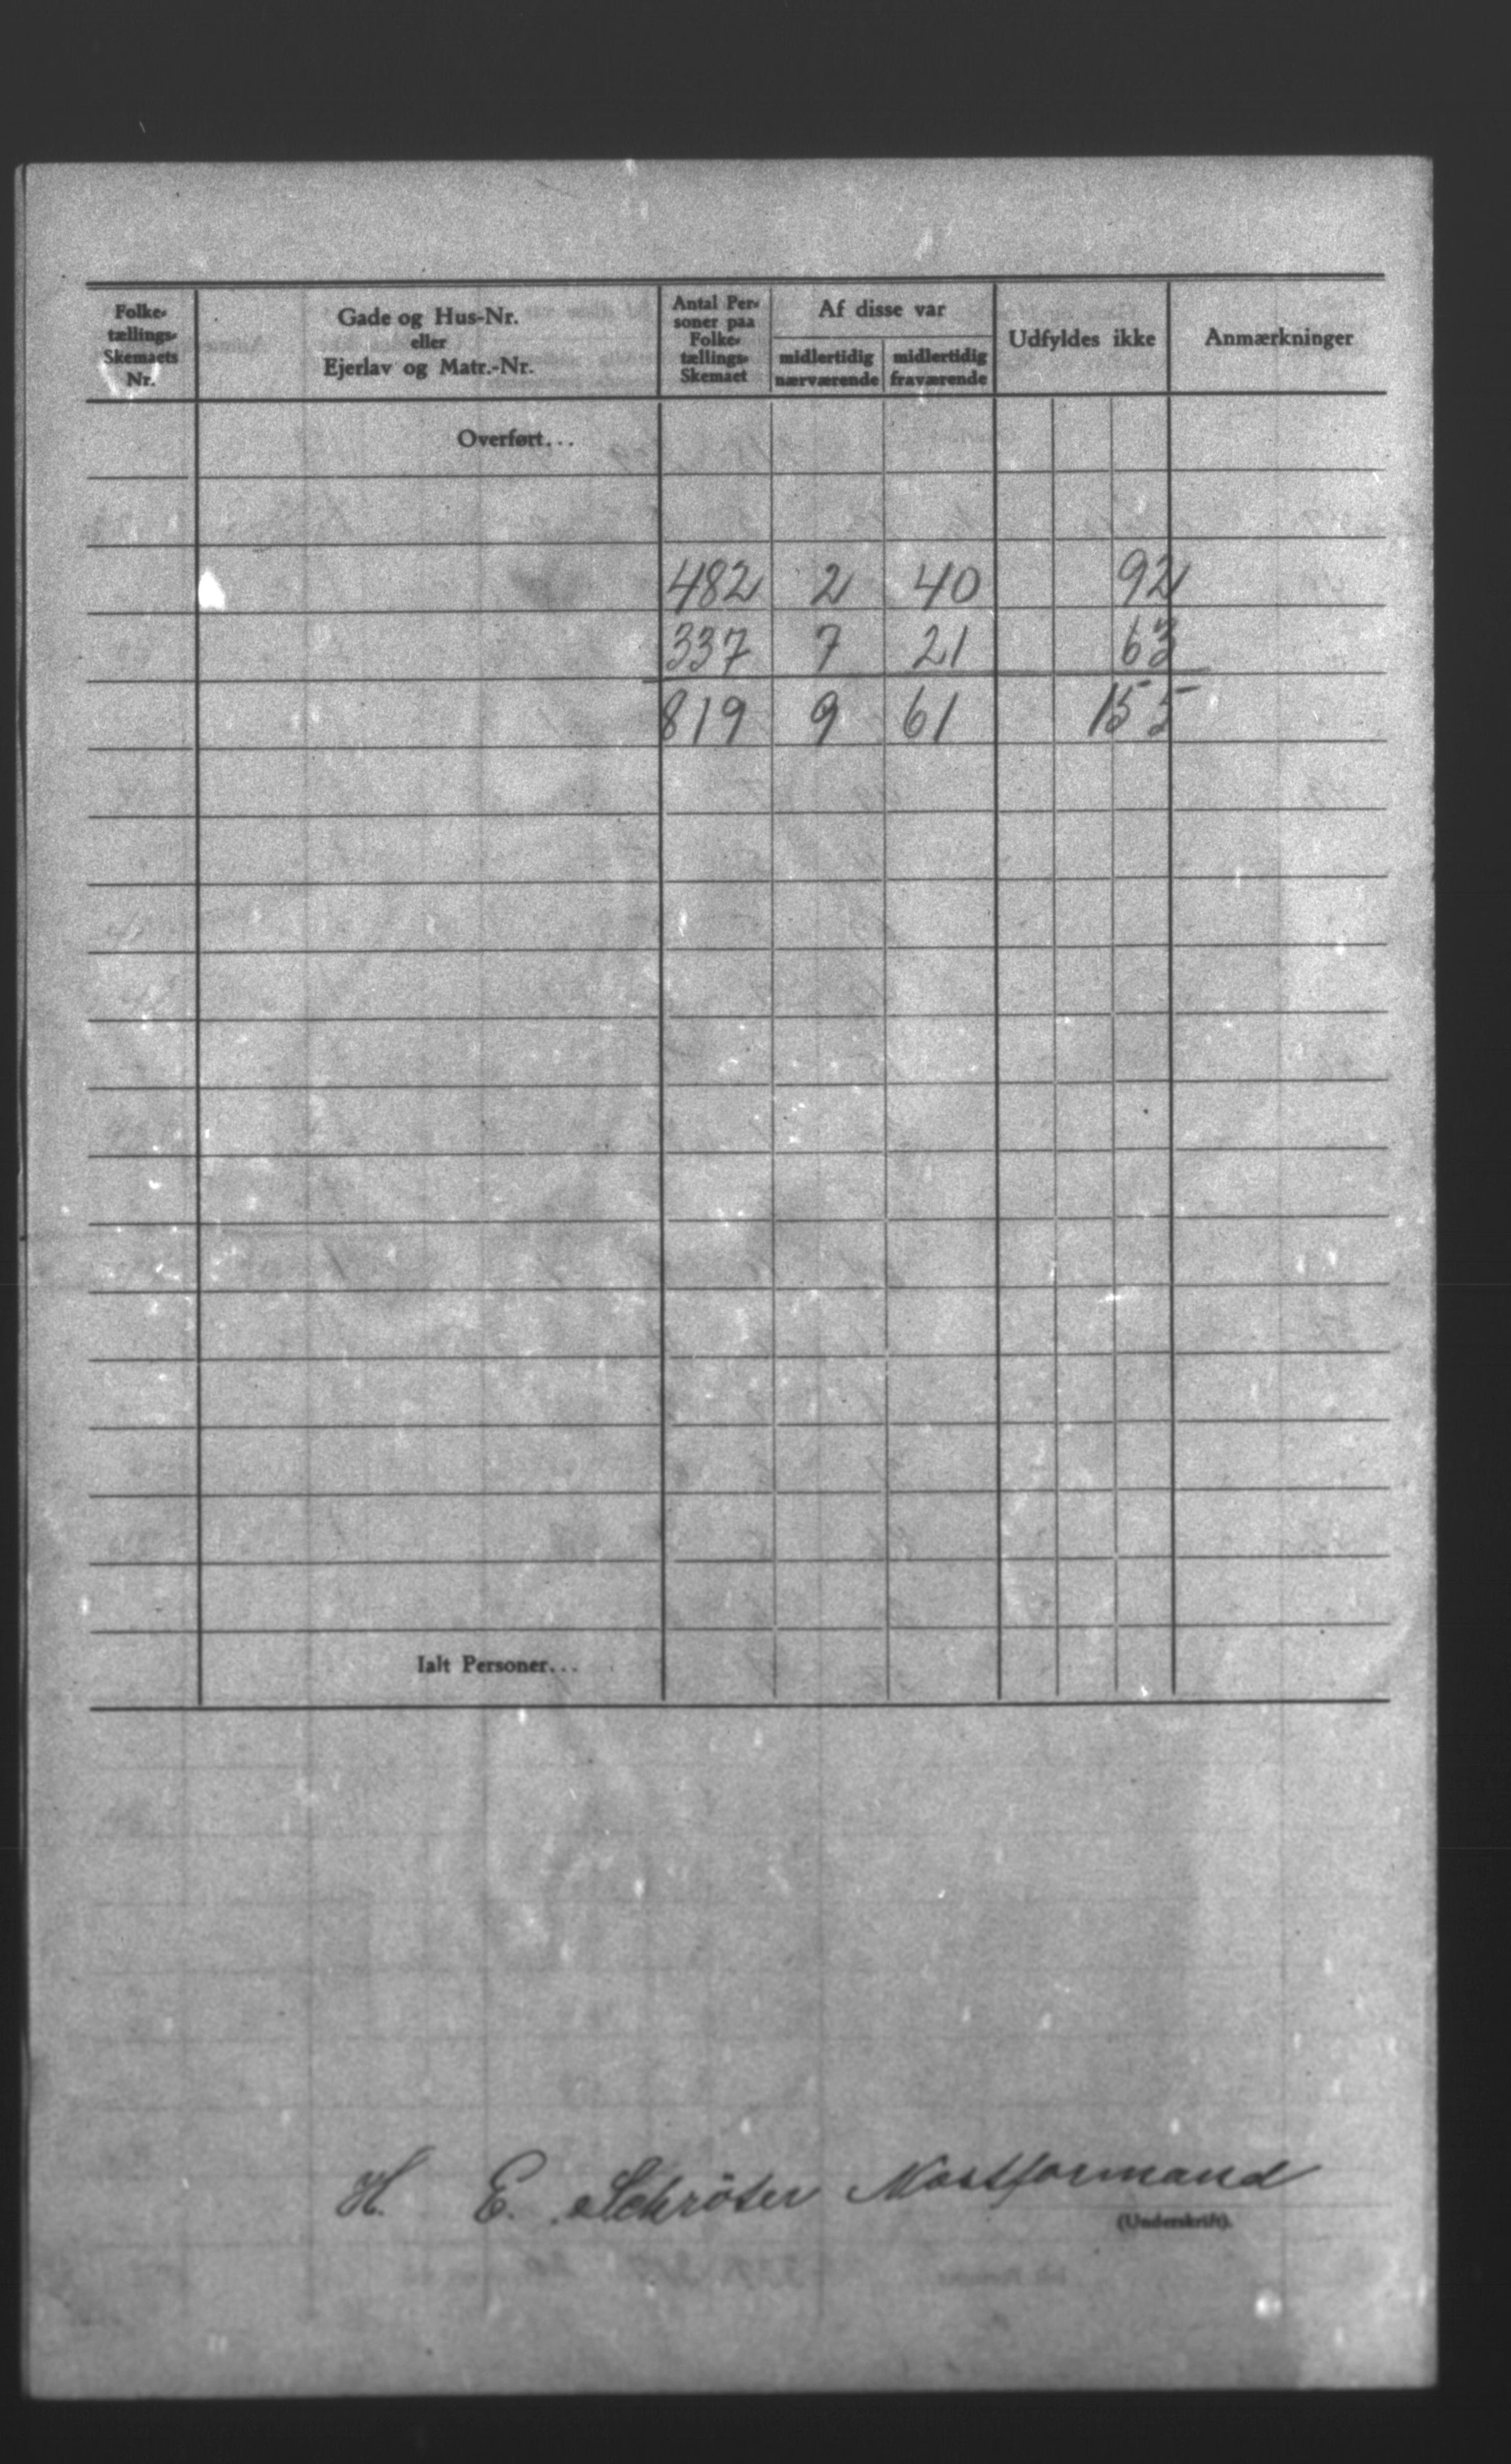 Folke-
tællings-
Skemaets
Nr.
Gade og Hus-Nr.
eller
Ejerlav og Matr.-Nr.
Antal Per-
soner paa
Folke-
tællings-
Skemaet
Af disse var
midlertidig
nærværende
midlertidig
fraværende
Udfyldes ikke
Anmærkninger
Overført...
482 2 40 92
337 7 21 63
819 9 61 155
Ialt Personer...
H. E. Schröter
(Underskrift).